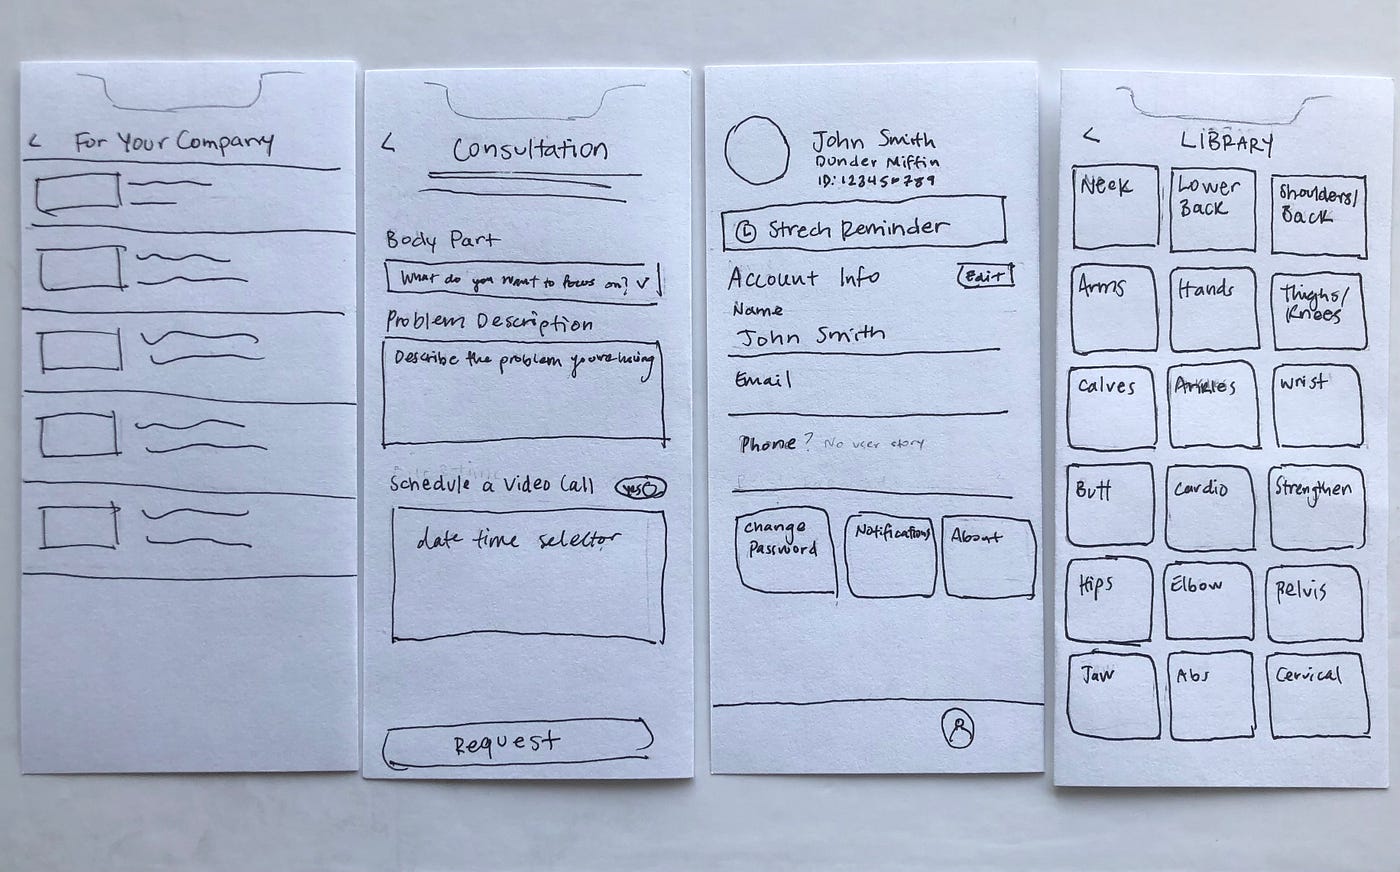 < For Your Company
< Consultation
Body Part
What do you want to focus on? v
Problem Description
Describe the problem you're having
Schedule a Video Call yes
date time selector
Request
John Smith
Dunder Miffin
ID: 123456789
Strech Reminder
Account Info Edit
Name
John Smith
Email
Phone? No user story
Change
Password
Notifications
About
< LIBRARY
Neck
Lower
Back
Shoulders/
Back
Arms
Hands
Thighs/
Knees
Calves
Ankles
Wrist
Butt
Cardio
Strengthen
Hips
Elbow
Pelvis
Jaw
Abs
Cervical